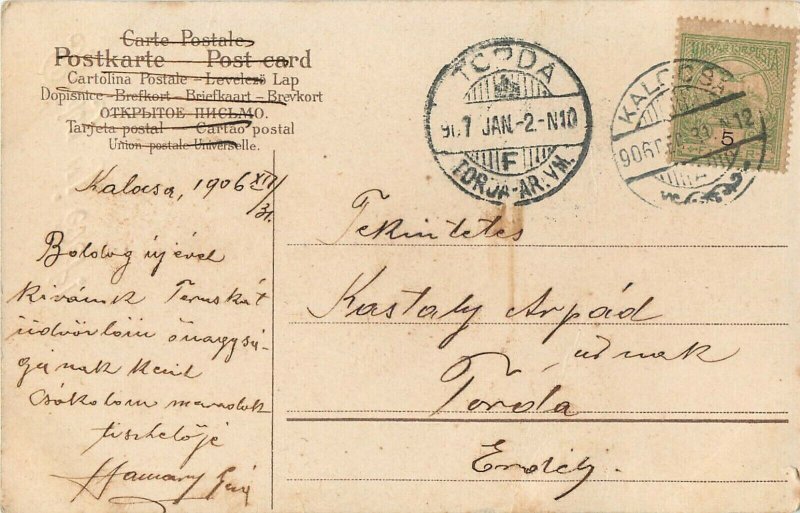 Carte Postale
Postkarte – Post card
Cartolina Postale – Levelező Lap
Dopisnice – Brefkort – Briefkaart – Brevkort
ОТКРЫТОЕ ПИСЬМО.
Tarjeta postal – Cartao postal
Union postale Universelle.
TORDA
907 JAN.-2.-N10
F
TORJA-AR.VM.
KALOCSA
906 N12
MAGYAR KIR. POSTA
5
Kalocsa, 1906 XII/31.
Boldog újével
kivánok Teruskát
üdvözlöm önagysá-
gának kezeit
csókolom maradok
tisztelője
Tekintetes
Kastaly Arpád
úrnak
Torda
Erdély.